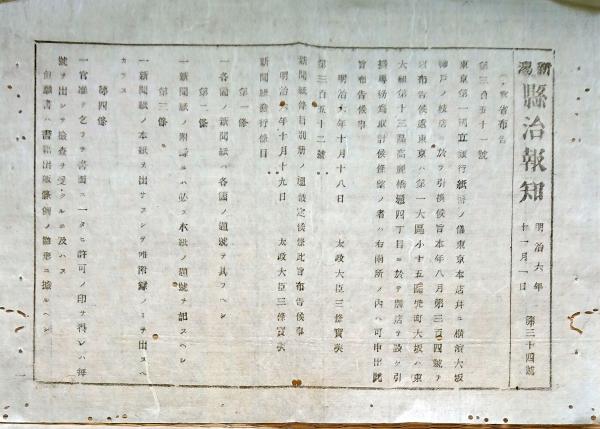 新潟
縣治報知
明治六年
十一月一日
第三十四號
省布告
第三百五十一號
東京第一國立銀行紙幣ノ儀東京本店幷ニ横濱大坂
神戸ノ枝店ニ於ヲ引換候旨本年八月第三百四號ヲ
以布告候處東京ハ第一大區小十五區 町大坂ハ東
大組第十三區高麗橋通四丁目ニ於テ 店ヲ設ケ引
換事務為取計候條望ノ者ハ右兩所ノ内ヘ可申出此
旨布告候事
明治六年十月十八日
太政大臣三條實美
第三百五十二號
新聞紙條目別册ノ通被定候條此旨布告候事
明治六年十月十九日
太政大臣三條實美
新聞紙發行條目
第一條
一各國ノ新聞紙ハ各國ノ題號ヲ具フヘシ
第二條
一新聞紙ノ附録ニハ必ス本紙ノ題號ヲ記スヘシ
第三條
一新聞紙ノ本紙ヲ出サスシテ唯附録ノミヲ出スヘ
カラス
第四條
一官准ヲ乞フヲ書面ニ一タヒ許可ノ印ヲ得レハ毎
號ヲ出シテ檢査ヲ受クルニ及ハス
但願書ハ書籍出版 ノ雛形ニ據ルヘシ